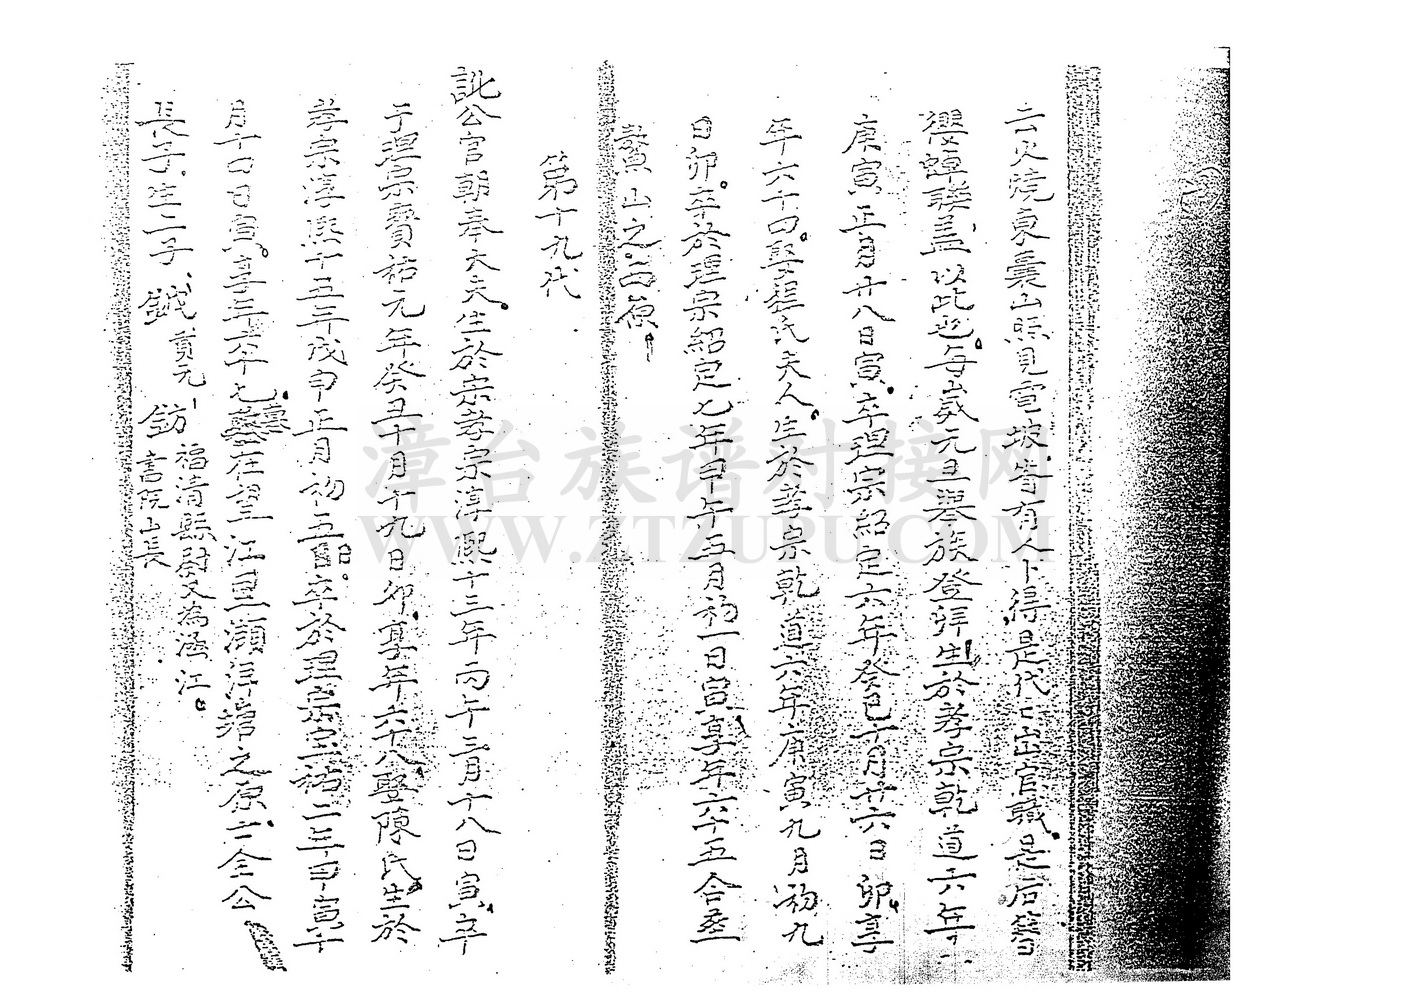 云火燒東囊山照見雲坡皆有人卜得是代出官職是后簪
纓蟬聯蓋以此也每歲元旦舉族登拜生於孝宗乾道六年
庚寅正月廿八日寅卒理宗紹定六年癸巳十月廿六日卯享
年六十四娶程氏夫人生於孝宗乾道六年庚寅九月初九
日卯卒於理宗紹定七年甲午五月初一日寅享年六十五合葬
鰲山之西原
第十九代
訿公官朝奉大夫生於宗孝宗淳熙十三年丙午三月十八日寅卒
于理宗寶祐元年癸丑十月十九日卯享年六十八娶陳氏生於
孝宗淳熙十五年戊申正月初五日酉卒於理宗宝祐二年甲寅十
月十四日寅享年六十七墓在望江里瀕洋之原士全公
長子生二子鉞貢元鈁福清縣尉又為涵江
書院山長
漳台族谱对接网
WWW.ZTZUPU.COM